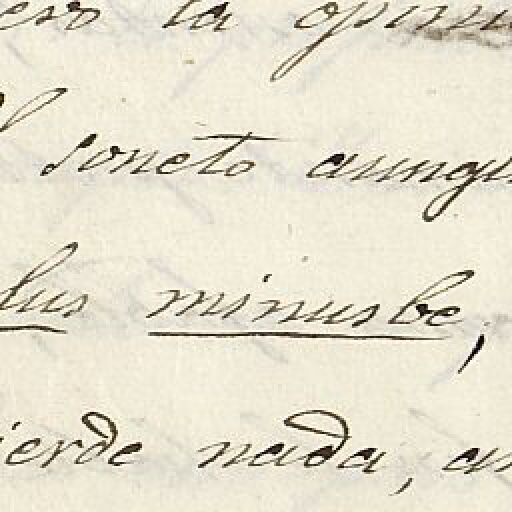 ero la opini
l soneto aunqu
lus minusbe,
ierde nada, an